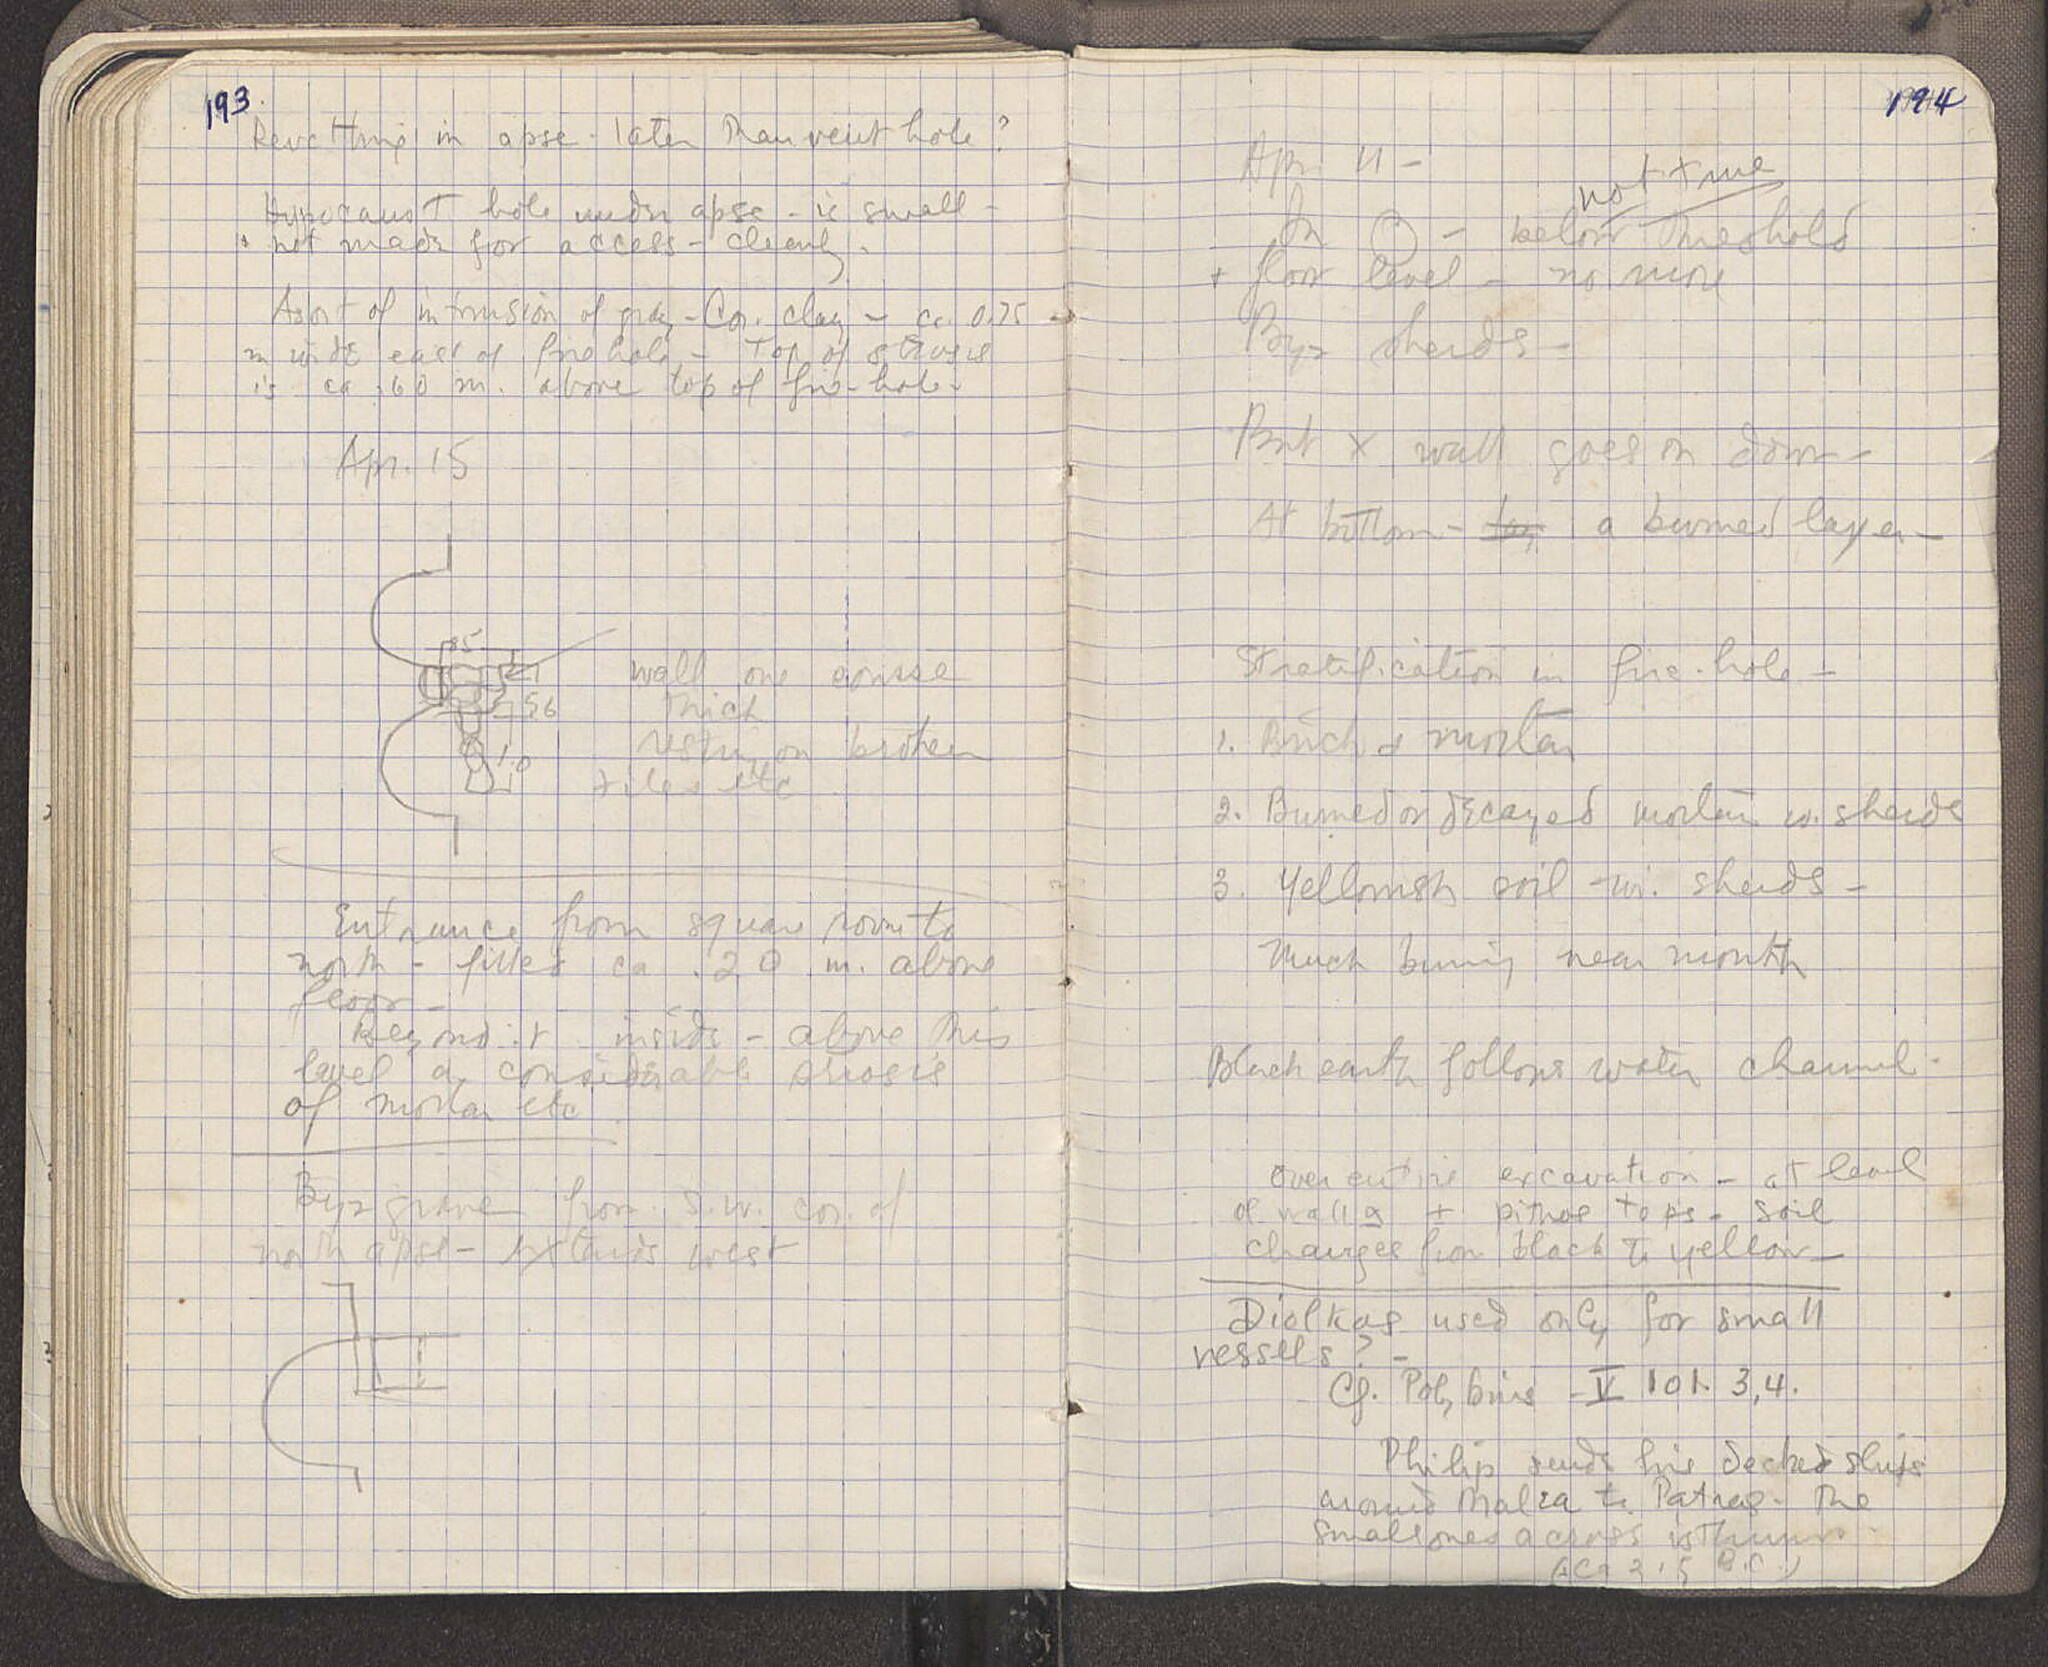 193
Revetting in apse - later than vent hole?
Hypocaust hole under apse - is small -
+ not made for access - clearly.
A sort of intrusion of gray - Cor. clay - ca. 0.75
m wide east of fire hole - Top of stosis
is ca .60 m. above top of fire-hole -
Apr. 15
.85
.21
.56
1.0
wall one course
thick
resting on broken
tiles etc
Entrance from square room to
north - filled ca .20 m. above
floor -
Beyond it inside - above this
level a considerable stosis
of mortar etc
Byz grave from S.W. cor. of
north apse - extends west
194
Apr. 11 -
not true
In - below threshold
+ floor level - no more
Byz sherds -
But x wall goes on down -
At bottom - a burned layer -
Stratification in fire-hole -
1. Brick & mortar
2. Burned or decayed mortar w. sherds
3. Yellowish soil - w. sherds -
Much burning near mouth
Black earth follows water channel -
Over entire excavation - at level
of walls + pithos tops - soil
changes from black to yellow -
Diolkos used only for small
vessels? -
Cf. Polybius - V 101. 3,4.
Philip sends his decked ships
around Malea to Patras - The
small ones across isthmus -
B.C.)